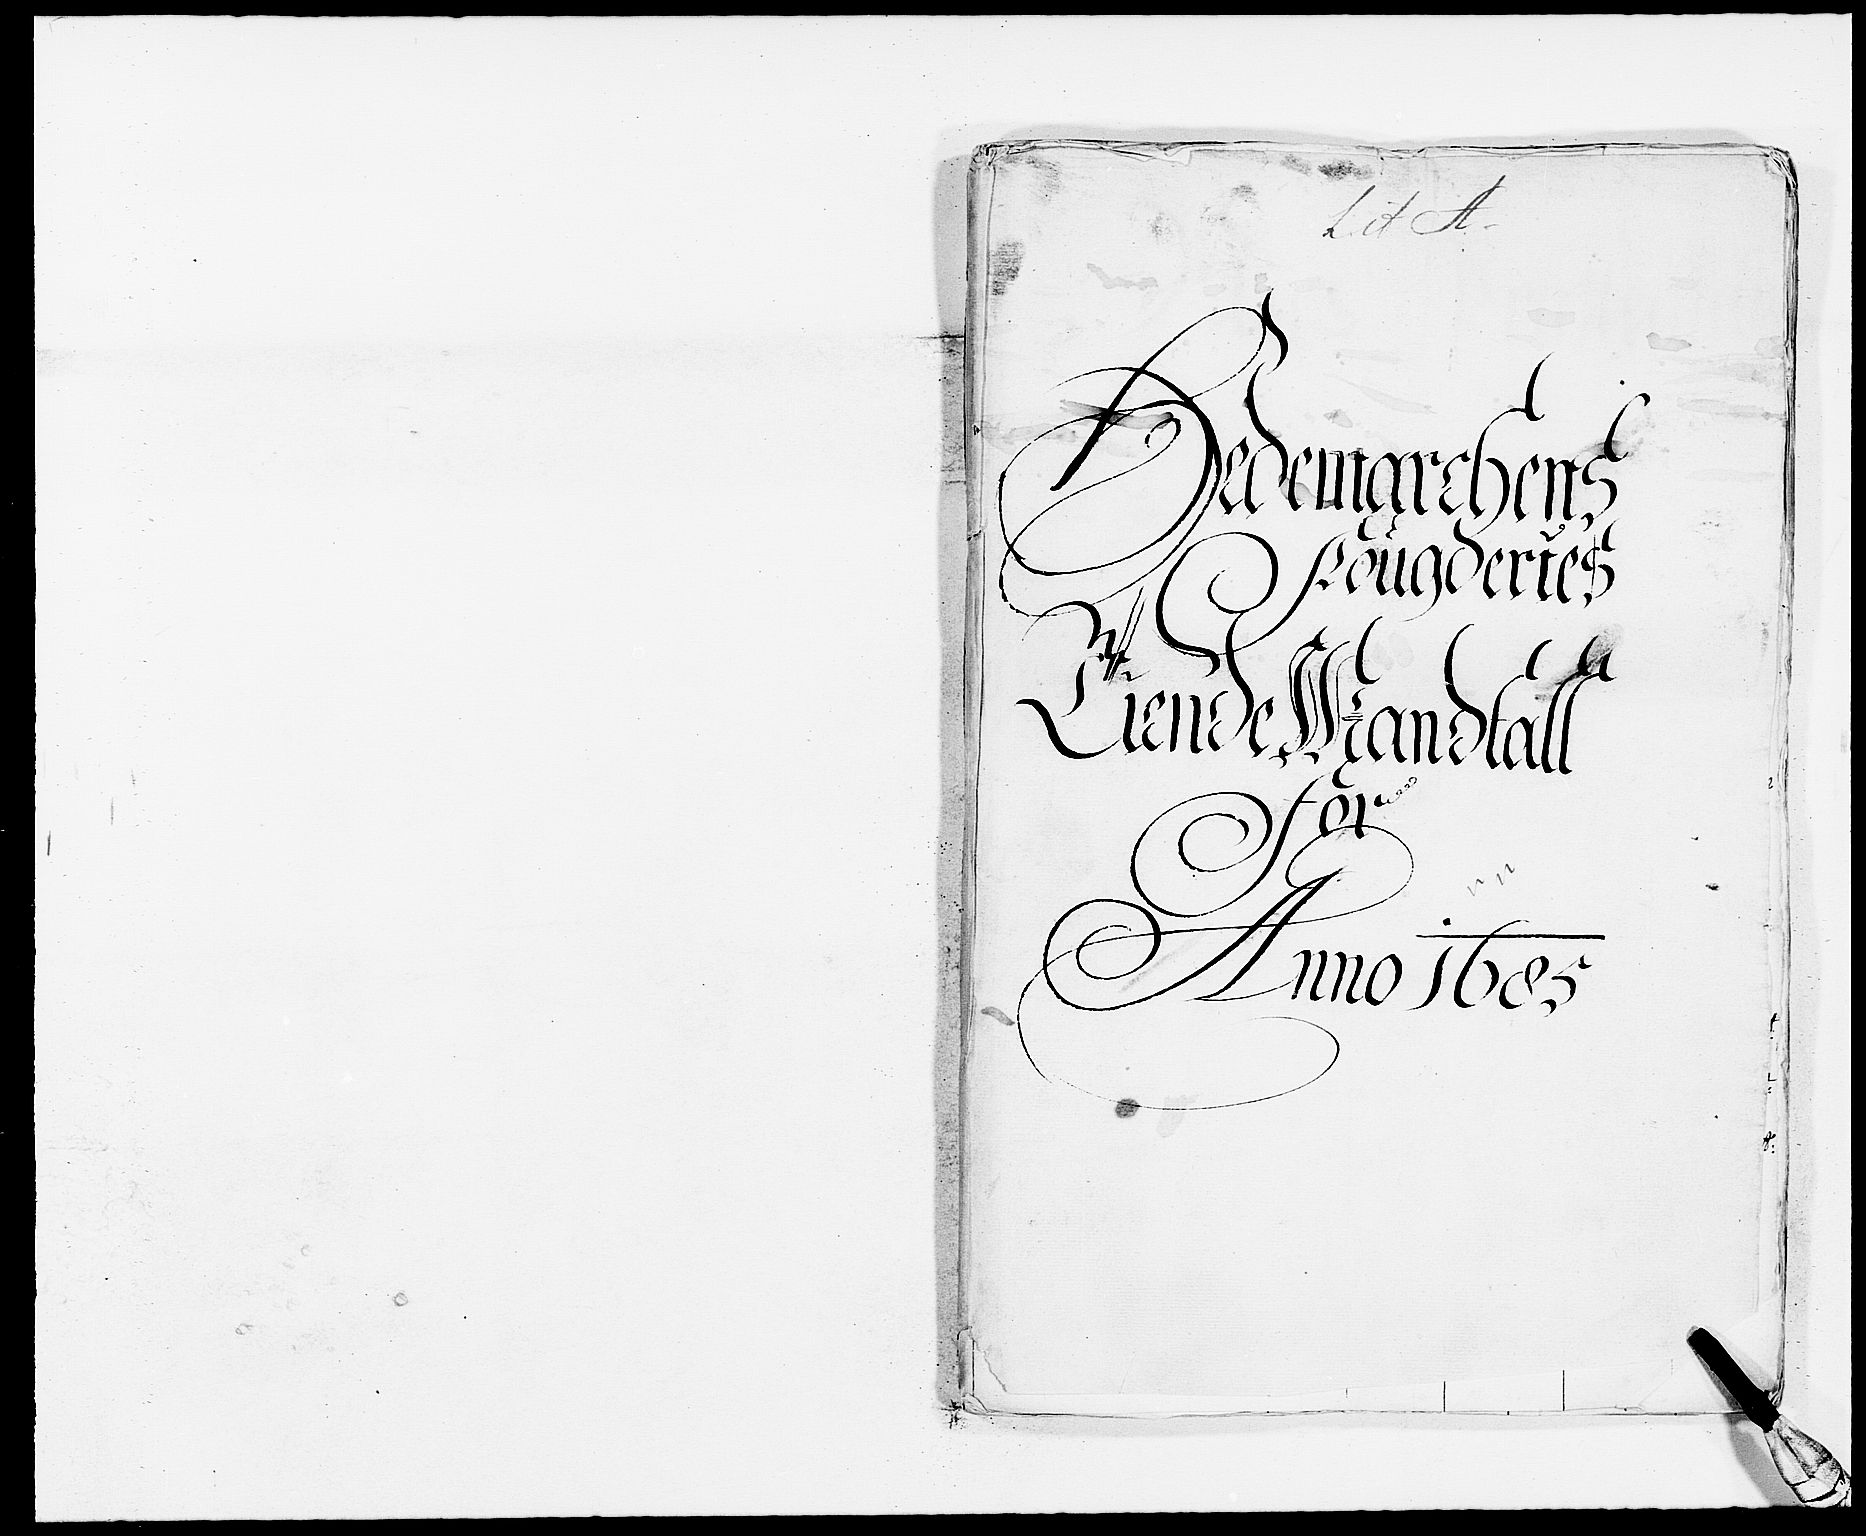 Lit A.
Hedemarchens
fougderies
Tiende Mandtall
for
Anno 1685